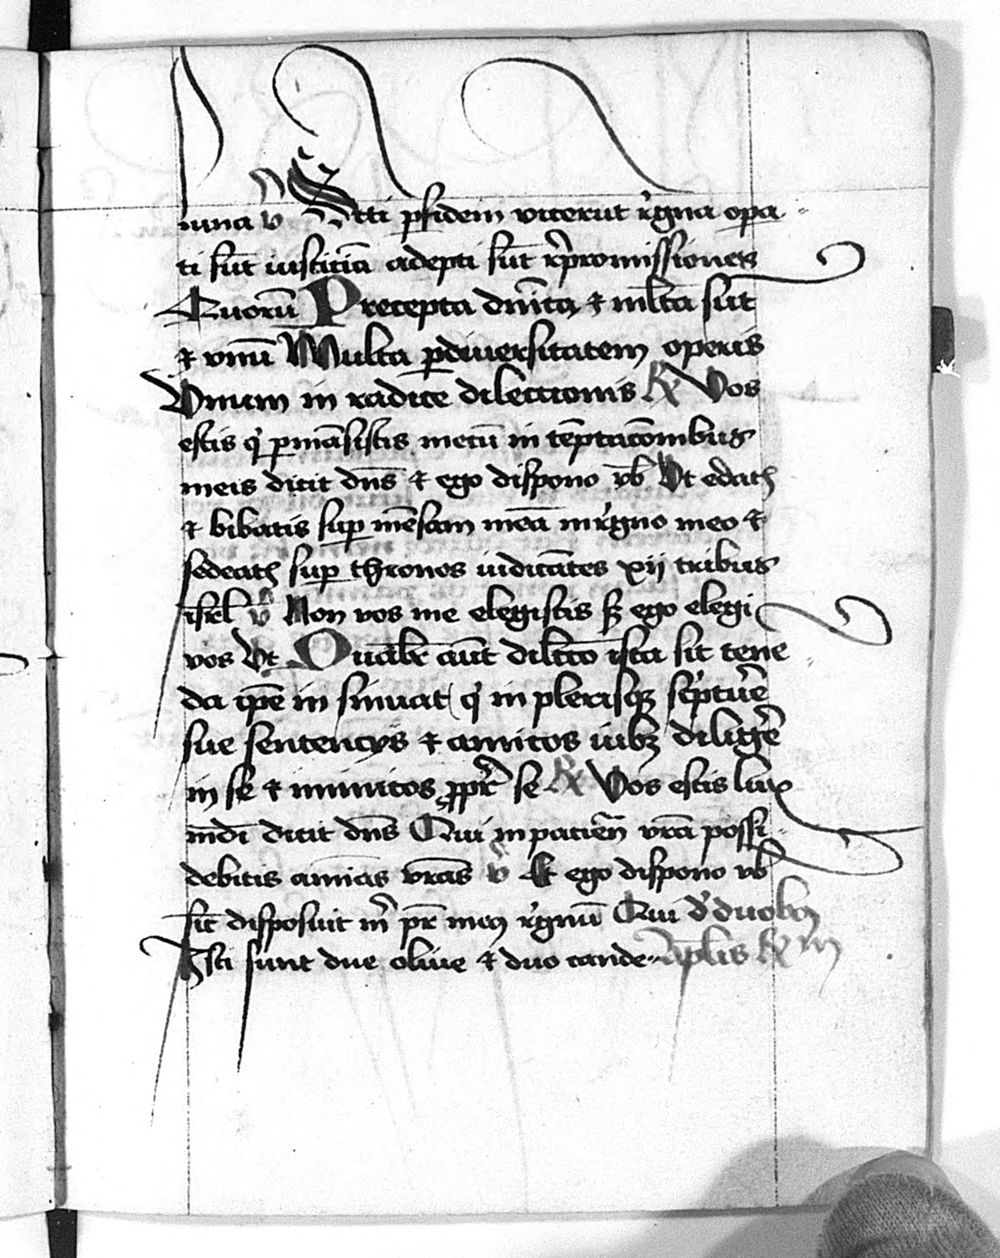 iuna v̄ Scti ꝑfidem vicerūt r̄gna opa
ti sūt iusticiā adepti sūt rep̄romissiones
Quorū Precepta dn̄ica ⁊ ml̄ta sūt
⁊ vnū Multa ꝑdiuersitatem operis
Vnum in radice dilectionis ℟ Vos
estis qͥ ꝑmāsistis mecū in tēptac̄onibus
meis dicit dn̄s ⁊ ego dispono vob̄ Vt edatꝭ
⁊ bibatis suꝑ mēsam meā in r̄gno meo ⁊
sedeatꝭ suꝑ thronos iudicātes xij tribus
isrl̄ v̄ Non vos me elegistis sꝫ ego elegi
vos Vt Qual̄r aūt dilc̄co ista sit tene
da ip̄e insinuat qͥ in plerisqꝫ sc̄ptur̄e
sue sentencijs ⁊ amicos iubꝫ diliger̄e
in se ⁊ inimicos ꝓpt̄ se ℟ Vos estis lux
mdī dicit dn̄s Qui in pacien̄ vrā possi
debitis animas vrās v̄ Et ego dispono vob̄
sic̄ disposuit m̄ pr̄ meꝰ r̄gnū Qui De duobꝰ
Isti sunt due oliue ⁊ duo cande apl̄is ℟